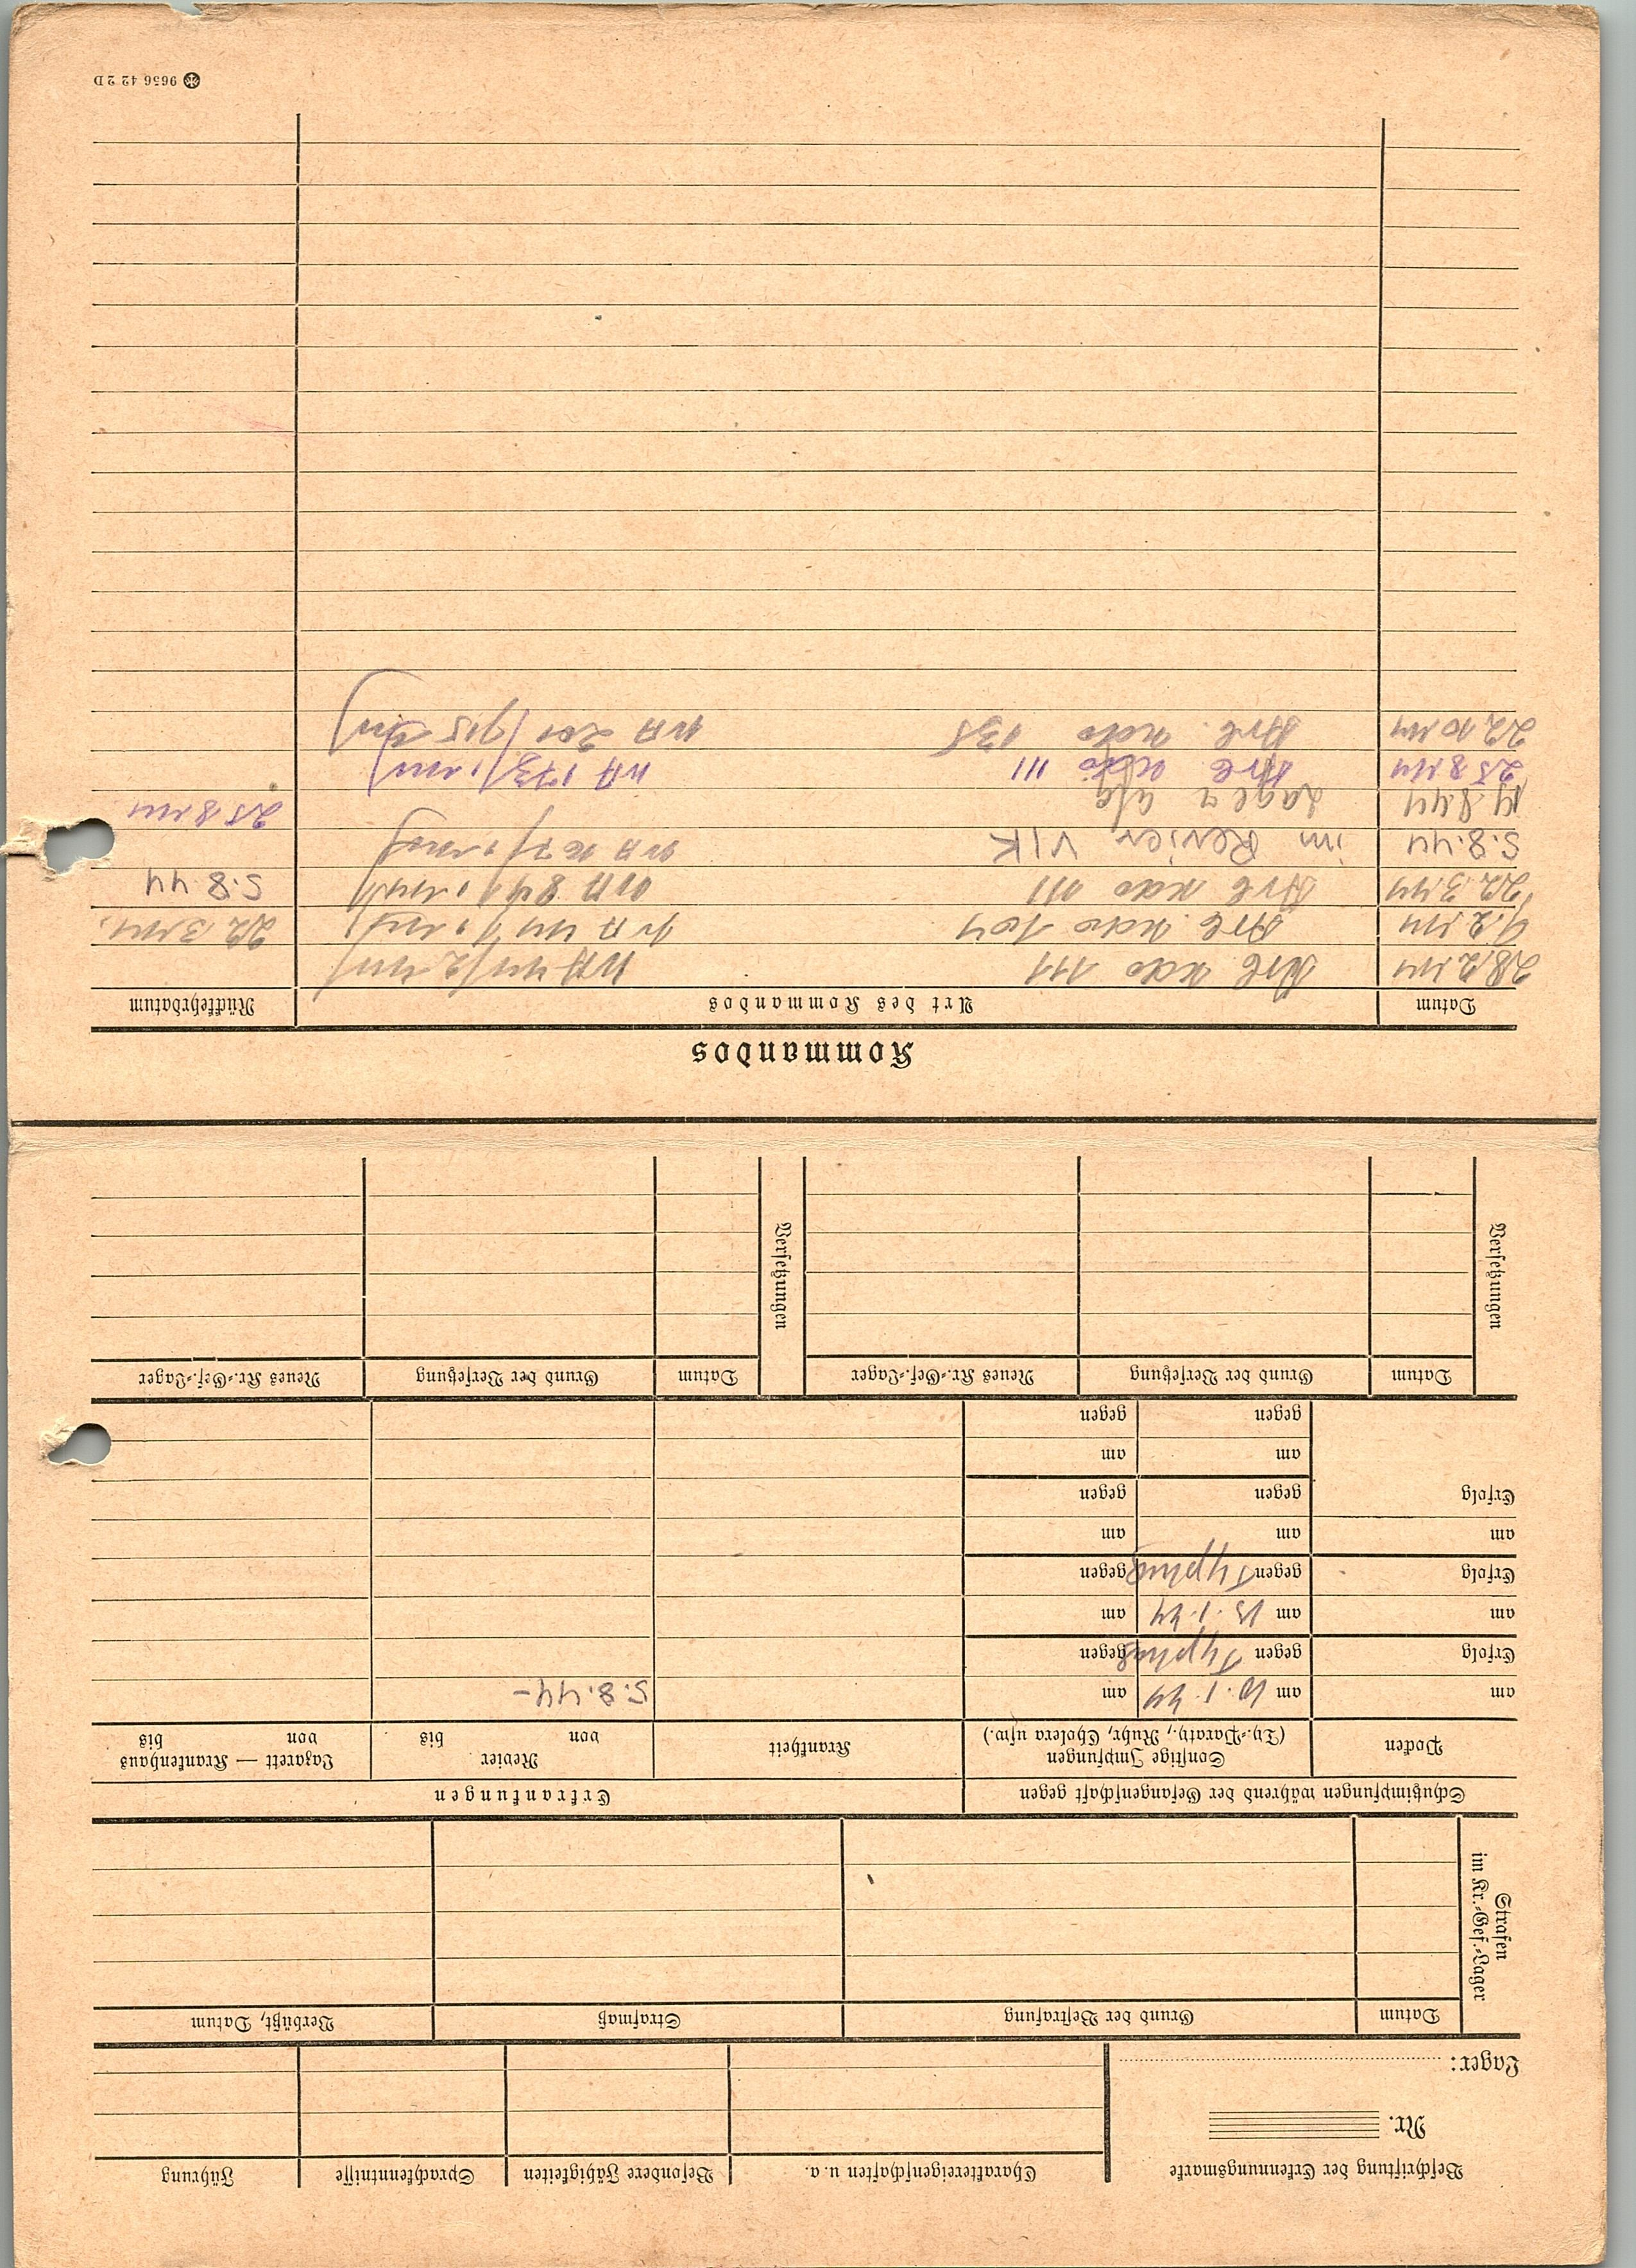 Beschriftung der Erkennungsmarke
Nr.
Lager:
Charaktereigenschaften u. a.
Besondere Fähigkeiten
Sprachkenntnisse
Führung
Strafen im Kr.-Gef.-Lager
Datum
Grund der Bestrafung
Strafmaß
Verbüßt, Datum
Schutzimpfungen während der Gefangenschaft gegen
Erkrankungen
Pocken
Sonstige Impfungen
(Ty.-Paraty., Ruhr, Cholera usw.)
Krankheit
Revier
von bis
Lazarett — Krankenhaus
von bis
am
am 10.1.44
am
5.8.44-
Erfolg
gegen Typhus
gegen
am
am 15.1.44
am
Erfolg
gegen Typhus
gegen
am
am
am
Erfolg
gegen
gegen
am
am
gegen
gegen
Versetzungen
Datum
Grund der Versetzung
Neues Kr.-Gef.-Lager
Versetzungen
Datum
Grund der Versetzung
Neues Kr.-Gef.-Lager
Kommandos
Datum
Art des Kommandos
Rückkehrdatum
28.2.44 Arb Kdo 111
9.2.44 Arb. Kdo 104 22.3.44.
22.3.44 Arb Kdo 111 5.8.44
5.8.44 im Revier V/K
14.8.44 Lager 25 8 44
25 8 44 Arb Kdo 111
22.10.44 Arb. Kdo 138
9656 42 2 D